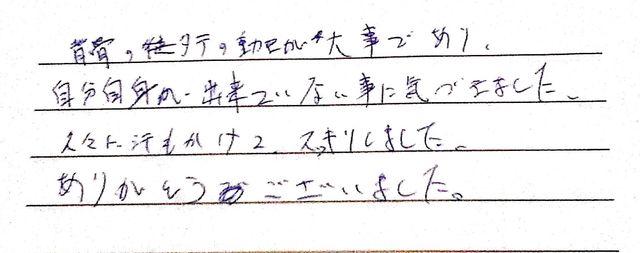 背骨のタテの動きが大事であり、
自分自身が出来ていない事に気づきました。
久々に汗もかけて、スッキリしました。
ありがとうございました。